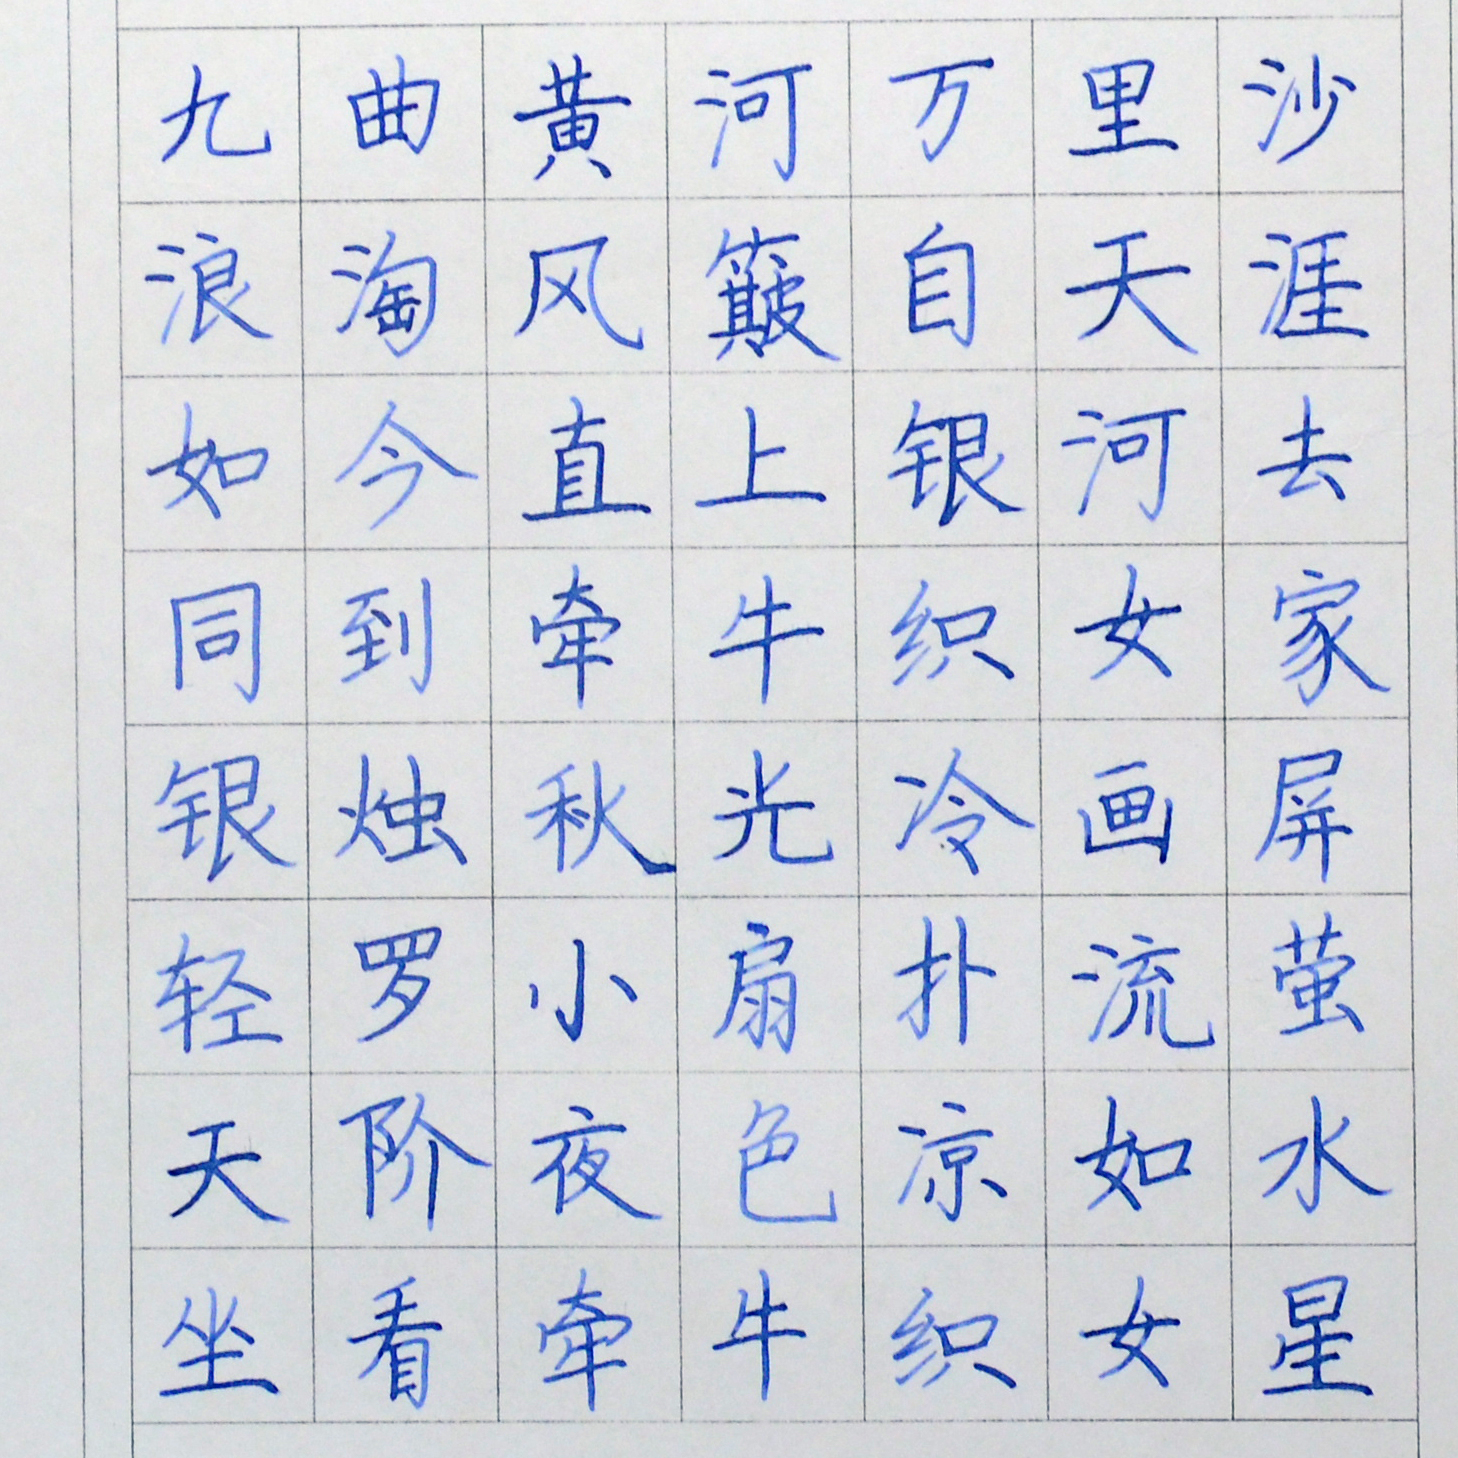 九曲黄河万里沙
浪淘风簸自天涯
如今直上银河去
同到牵牛织女家
银烛秋光冷画屏
轻罗小扇扑流萤
天阶夜色凉如水
坐看牵牛织女星